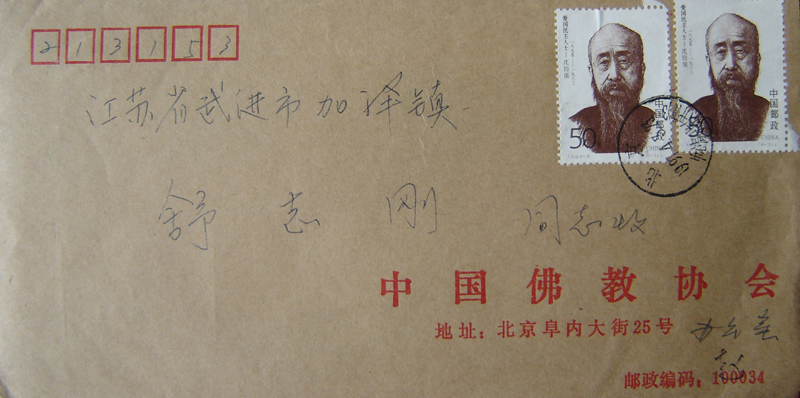 213153
江苏省武进市加泽镇
舒志刚 同志收
中国佛教协会
地址：北京阜内大街25号 办公室
邮政编码：100034
爱国民主人士—沈钧儒
50
中国邮政
CHINA
爱国民主人士—沈钧儒
50
中国邮政
CHINA
北京